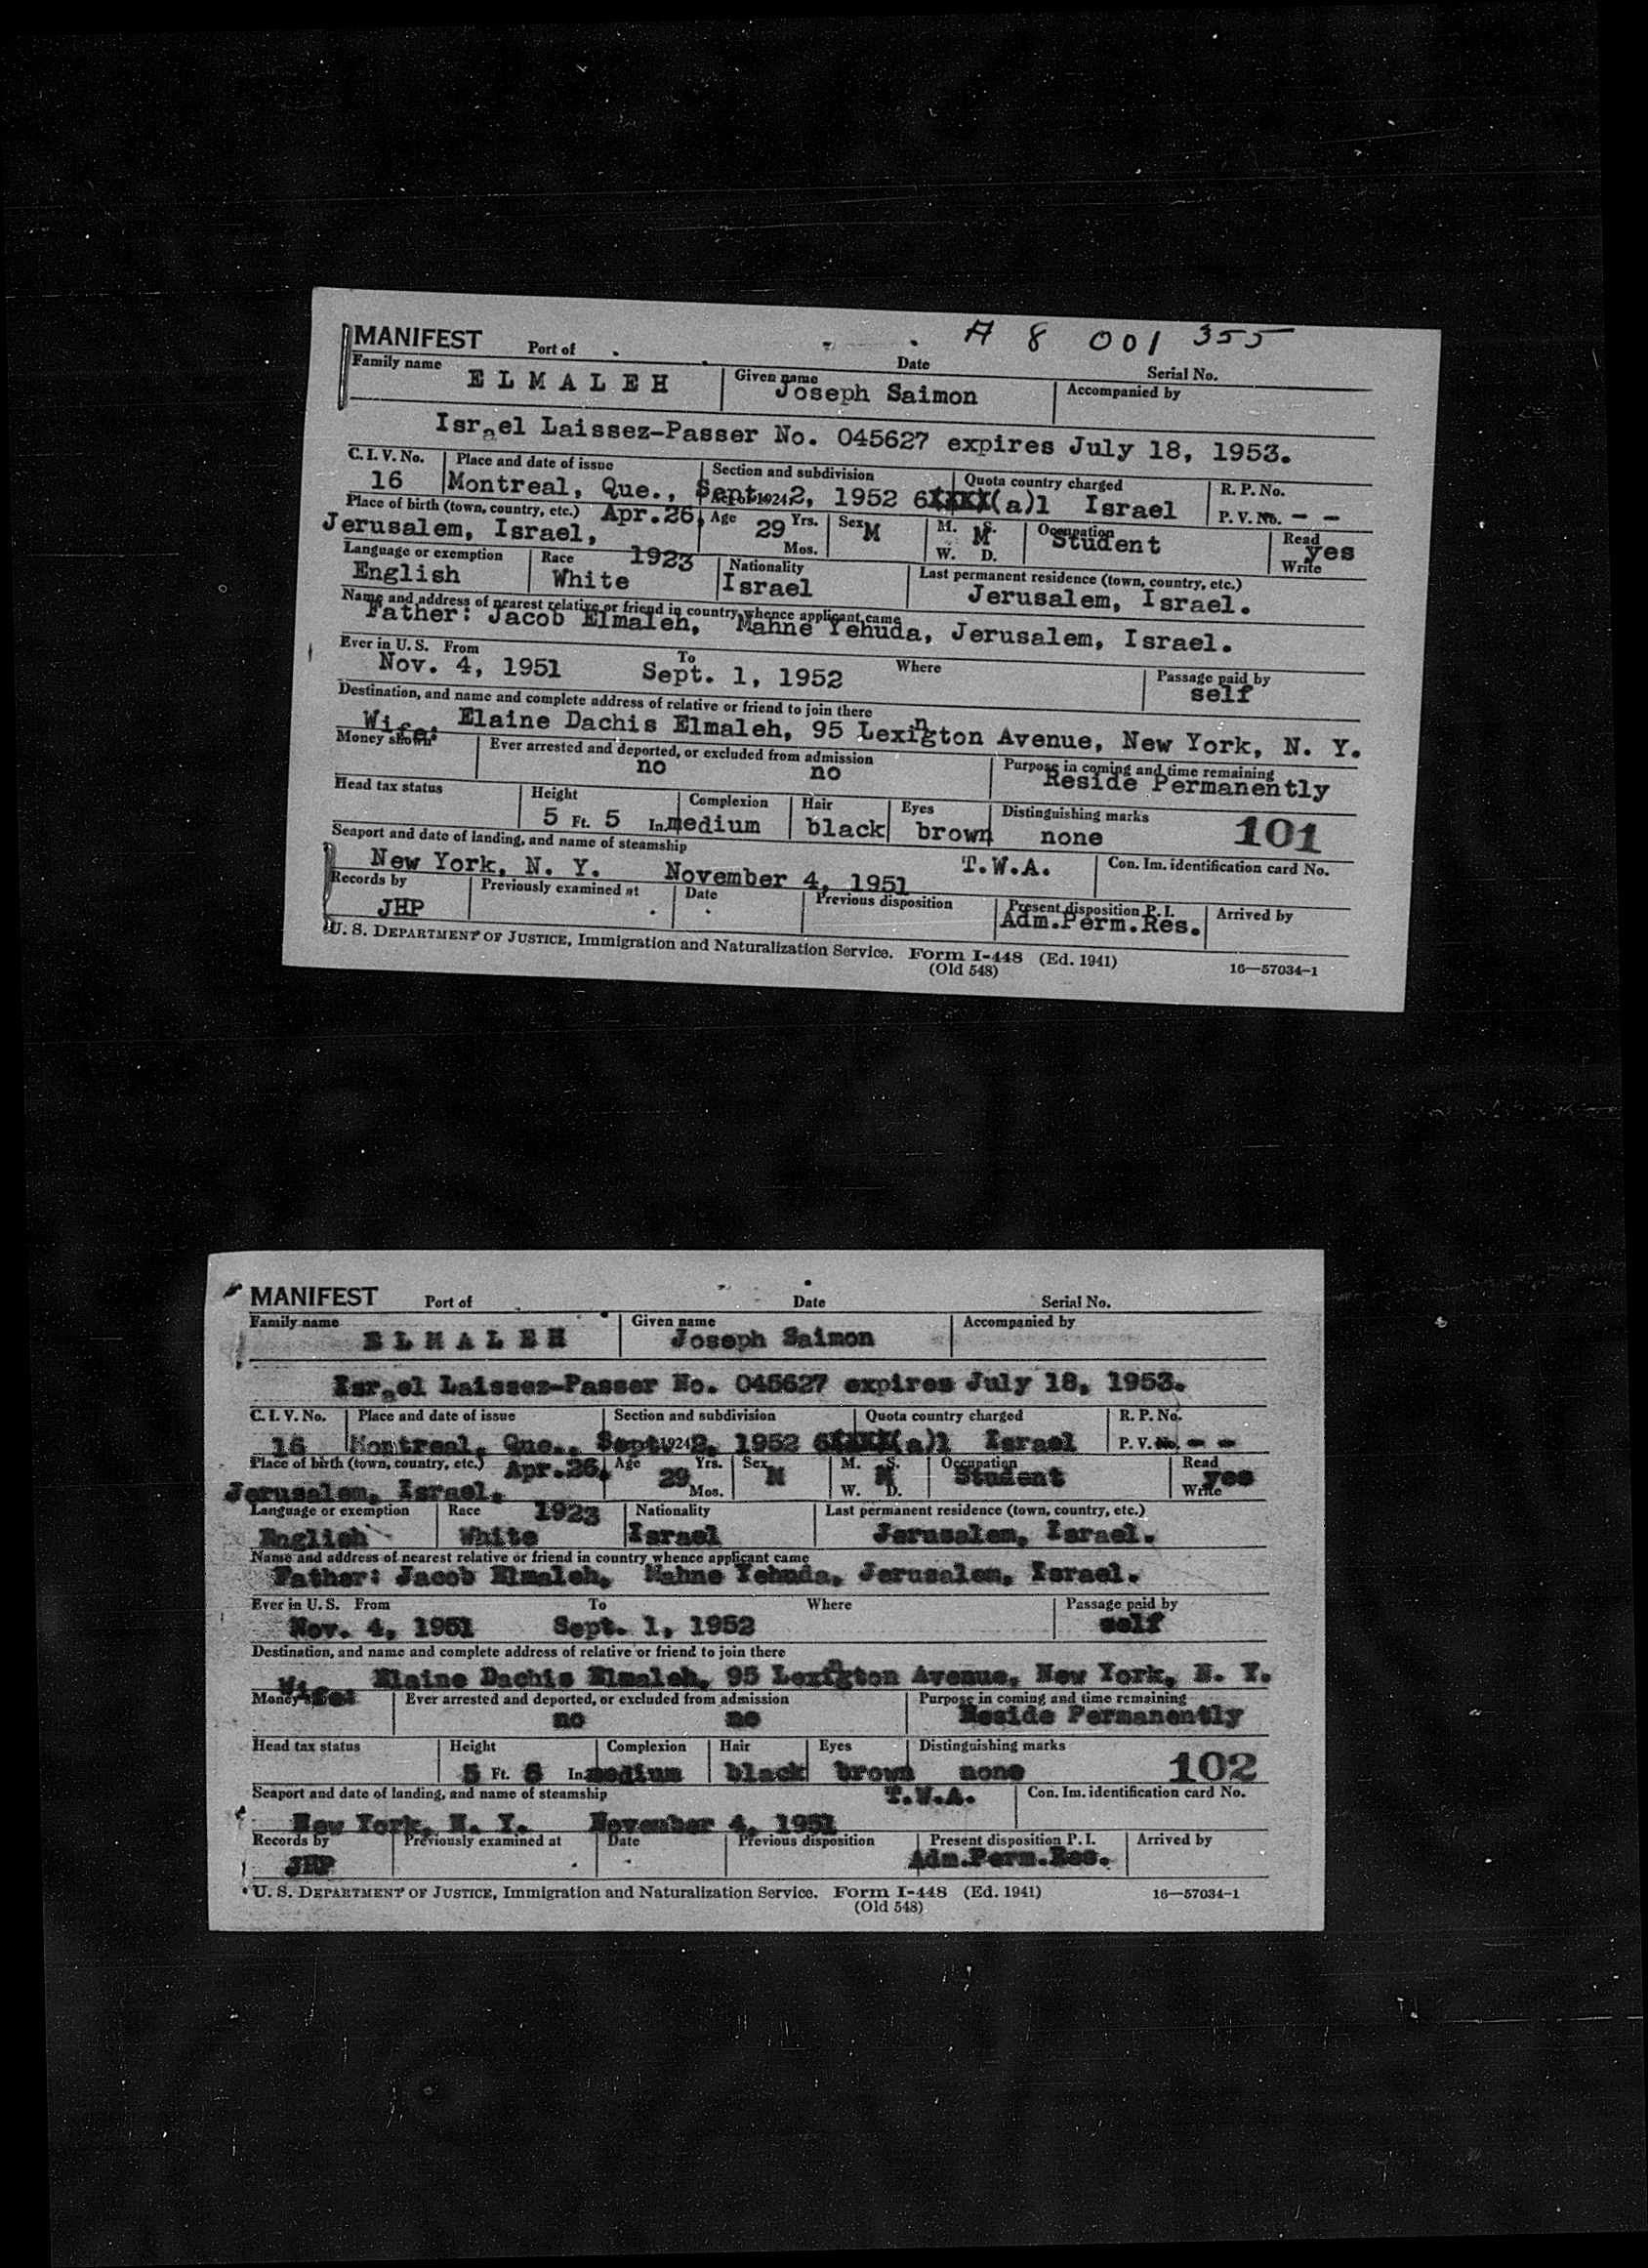 MANIFEST Port of Date A 8 001 355 Serial No.
Family name ELMALEH Given name Joseph Saimon Accompanied by
Israel Laissez-Passer No. 045627 expires July 18, 1953.
C. I. V. No. Place and date of issue Section and subdivision Quota country charged R. P. No.
16 Montreal, Que., Sept. 2, 1952 6XXXX(a)1 Israel P. V. No. - -
Place of birth (town, country, etc.) Apr.26, Age 29 Yrs. Sex M M. S. M Occupation Student Read yes
Jerusalem, Israel, 1923 Mos. W. D. Write
Language or exemption Race Nationality Last permanent residence (town, country, etc.)
English White Israel Jerusalem, Israel.
Name and address of nearest relative or friend in country whence applicant came
Father: Jacob Elmaleh, Mahne Yehuda, Jerusalem, Israel.
Ever in U. S. From To Where Passage paid by
Nov. 4, 1951 Sept. 1, 1952 self
Destination, and name and complete address of relative or friend to join there
Wife: Elaine Dachis Elmaleh, 95 Lexington Avenue, New York, N. Y.
Money shown Ever arrested and deported, or excluded from admission Purpose in coming and time remaining
no no Reside Permanently
Head tax status Height Complexion Hair Eyes Distinguishing marks
5 Ft. 5 In. medium black brown none 101
Seaport and date of landing, and name of steamship
New York, N. Y. November 4, 1951 T.W.A. Con. Im. identification card No.
Records by Previously examined at Date Previous disposition Present disposition P. I. Arrived by
JHP Adm.Perm.Res.
U. S. DEPARTMENT OF JUSTICE, Immigration and Naturalization Service. Form I-448 (Ed. 1941) 16—57034-1
(Old 548)
MANIFEST Port of Date Serial No.
Family name ELMALEH Given name Joseph Saimon Accompanied by
Israel Laissez-Passer No. 045627 expires July 18, 1953.
C. I. V. No. Place and date of issue Section and subdivision Quota country charged R. P. No.
16 Montreal, Que., Sept. 1924 2, 1952 6XXXX(a)1 Israel P. V. No. - -
Place of birth (town, country, etc.) Apr.26, Age 29 Yrs. Sex M M. S. M Occupation Student Read yes
Jerusalem, Israel, 1923 Mos. W. D. Write
Language or exemption Race Nationality Last permanent residence (town, country, etc.)
English White Israel Jerusalem, Israel.
Name and address of nearest relative or friend in country whence applicant came
Father: Jacob Elmaleh, Mahne Yehuda, Jerusalem, Israel.
Ever in U. S. From To Where Passage paid by
Nov. 4, 1951 Sept. 1, 1952 self
Destination, and name and complete address of relative or friend to join there
Wife: Elaine Dachis Elmaleh, 95 Lexington Avenue, New York, N. Y.
Money Ever arrested and deported, or excluded from admission Purpose in coming and time remaining
no no Reside Permanently
Head tax status Height Complexion Hair Eyes Distinguishing marks
5 Ft. 5 In. medium black brown none 102
Seaport and date of landing, and name of steamship
New York, N. Y. November 4, 1951 T.W.A. Con. Im. identification card No.
Records by Previously examined at Date Previous disposition Present disposition P. I. Arrived by
JHP Adm.Perm.Res.
U. S. DEPARTMENT OF JUSTICE, Immigration and Naturalization Service. Form I-448 (Ed. 1941) 16—57034-1
(Old 548)